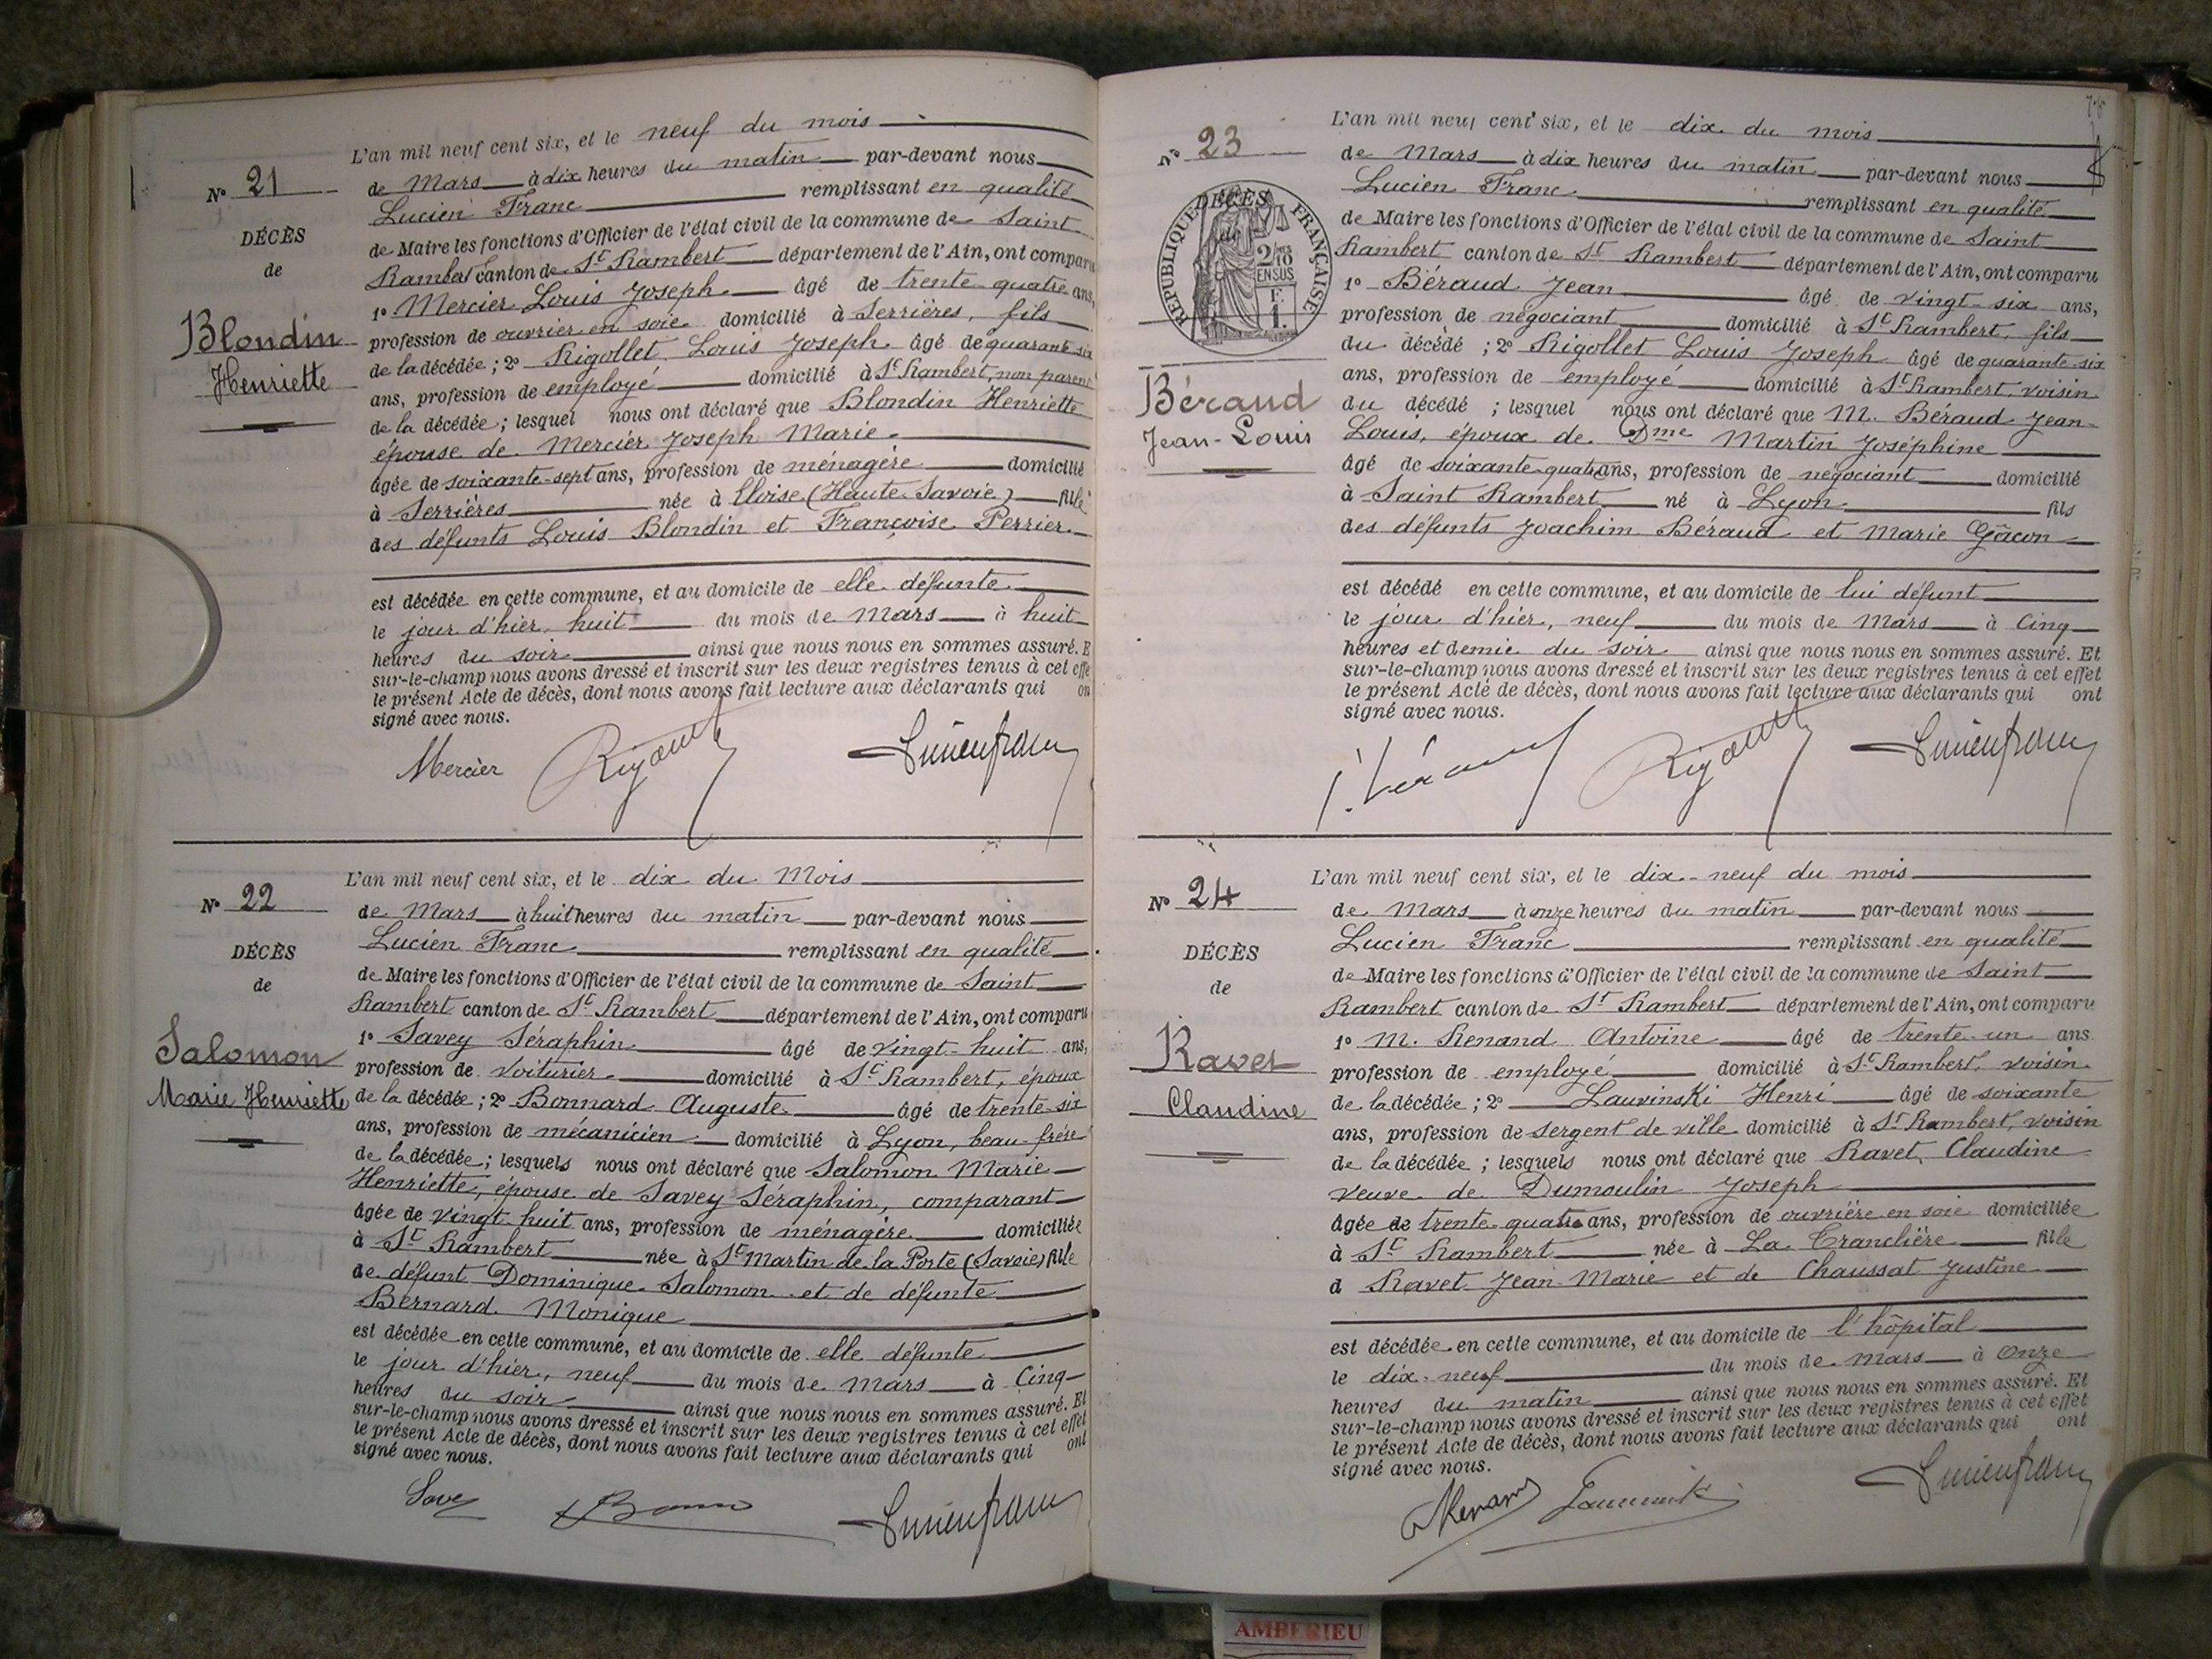 N° 21
DÉCÈS
de
Blondin
Henriette
L'an mil neuf cent six, et le neuf du mois
de Mars à dix heures du matin par-devant nous
Lucien Franc remplissant en qualité
de Maire les fonctions d'Officier de l'état civil de la commune de Saint
Rambert canton de St Rambert département de l'Ain, ont comparu
1° Mercier Louis Joseph âgé de trente quatre ans,
profession de ouvrier en soie domicilié à Serrières, fils
de la décédée; 2° Rigollet Louis Joseph âgé de quarante six
ans, profession de employé domicilié à St Rambert, non parent
de la décédée; lesquel nous ont déclaré que Blondin Henriette
épouse de Mercier Joseph Marie
âgée de soixante-sept ans, profession de ménagère domicilié
à Serrières née à Eloise (Haute-Savoie) fille
des défunts Louis Blondin et Françoise Perrier
est décédée en cette commune, et au domicile de elle défunte
le jour d'hier, huit du mois de Mars à huit
heures du soir ainsi que nous nous en sommes assuré. E
sur-le-champ nous avons dressé et inscrit sur les deux registres tenus à cet effe
le présent Acte de décès, dont nous avons fait lecture aux déclarants qui on
signé avec nous.
Mercier Lucien franc
N° 22
DÉCÈS
de
Salomon
Marie Henriette
L'an mil neuf cent six, et le dix du Mois
de Mars à huit heures du matin par-devant nous
Lucien Franc remplissant en qualité
de Maire les fonctions d'Officier de l'état civil de la commune de Saint
Rambert canton de St Rambert département de l'Ain, ont comparu
1° Savey Séraphin âgé de vingt-huit ans,
profession de voiturier domicilié à St Rambert, époux
de la décédée; 2° Bonnard Auguste âgé de trente-six
ans, profession de mécanicien domicilié à Lyon, beau-frère
de la décédée; lesquels nous ont déclaré que Salomon Marie
Henriette, épouse de Savey Séraphin, comparant
âgée de vingt-huit ans, profession de ménagère domiciliée
à St Rambert née à St Martin de la Porte (Savoie) fille
de défunt Dominique Salomon et de défunte
Bernard Monique
est décédée en cette commune, et au domicile de elle défunte
le jour d'hier, neuf du mois de Mars à Cinq
heures du soir ainsi que nous nous en sommes assuré. Et
sur-le-champ nous avons dressé et inscrit sur les deux registres tenus à cet effet
le présent Acte de décès, dont nous avons fait lecture aux déclarants qui ont
signé avec nous.
Savey Lucien franc
N° 23
DÉCÈS
de
RÉPUBLIQUE FRANÇAISE
2/10
EN SUS
F.
1.
Béraud
Jean-Louis
L'an mil neuf cent six, et le dix du mois
de Mars à dix heures du matin par-devant nous
Lucien Franc remplissant en qualité
de Maire les fonctions d'Officier de l'état civil de la commune de Saint
Rambert canton de St Rambert département de l'Ain, ont comparu
1° Béraud Jean âgé de vingt-six ans,
profession de négociant domicilié à St Rambert, fils
du décédé; 2° Rigollet Louis Joseph âgé de quarante-six
ans, profession de employé domicilié à St Rambert, voisin
du décédé; lesquel nous ont déclaré que M. Béraud Jean-
Louis, époux de Dme Martin Joséphine
âgé de soixante-quatre ans, profession de négociant domicilié
à Saint Rambert né à Lyon fils
des défunts Joachim Béraud et Marie Gâcon
est décédé en cette commune, et au domicile de lui défunt
le jour d'hier, neuf du mois de Mars à Cinq
heures et demie du soir ainsi que nous nous en sommes assuré. Et
sur-le-champ nous avons dressé et inscrit sur les deux registres tenus à cet effet
le présent Acte de décès, dont nous avons fait lecture aux déclarants qui ont
signé avec nous.
J. Béraud Lucien franc
N° 24
DÉCÈS
de
Ravet
Claudine
L'an mil neuf cent six, et le dix-neuf du mois
de Mars à onze heures du matin par-devant nous
Lucien Franc remplissant en qualité
de Maire les fonctions d'Officier de l'état civil de la commune de Saint
Rambert canton de St Rambert département de l'Ain, ont comparu
1° M. Renand Antoine âgé de trente-un ans
profession de employé domicilié à St Rambert, voisin
de la décédée; 2° Lauvinski Henri âgé de soixante
ans, profession de sergent de ville domicilié à St Rambert, voisin
de la décédée; lesquels nous ont déclaré que Ravet Claudine
veuve de Dumoulin Joseph
âgée de trente-quatre ans, profession de ouvrière en soie domiciliée
à St Rambert née à La Tranclière fille
d Ravet Jean-Marie et de Chaussat Justine
est décédée en cette commune, et au domicile de l'hôpital
le dix-neuf du mois de mars à Onze
heures du matin ainsi que nous nous en sommes assuré. Et
sur-le-champ nous avons dressé et inscrit sur les deux registres tenus à cet effet
le présent Acte de décès, dont nous avons fait lecture aux déclarants qui ont
signé avec nous.
Lucien franc
AMBERIEU